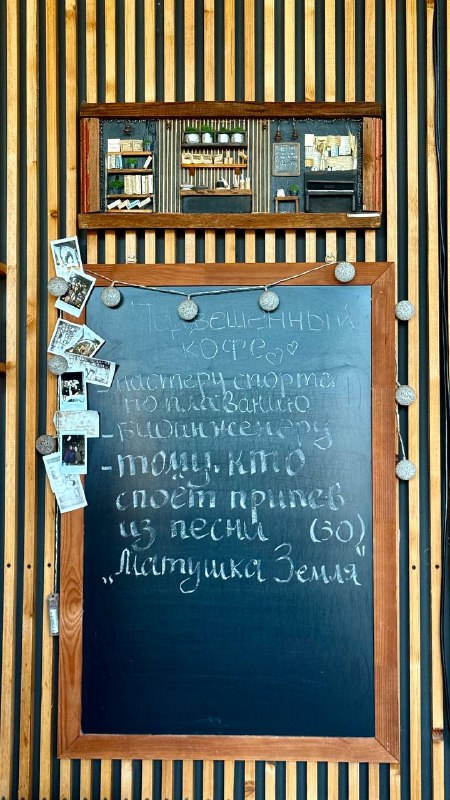 Подвешенный
кофе
- мастеру спорта
по плаванию
- биоинженеру
- тому, кто
споёт припев
из песни (30)
„Матушка Земля"